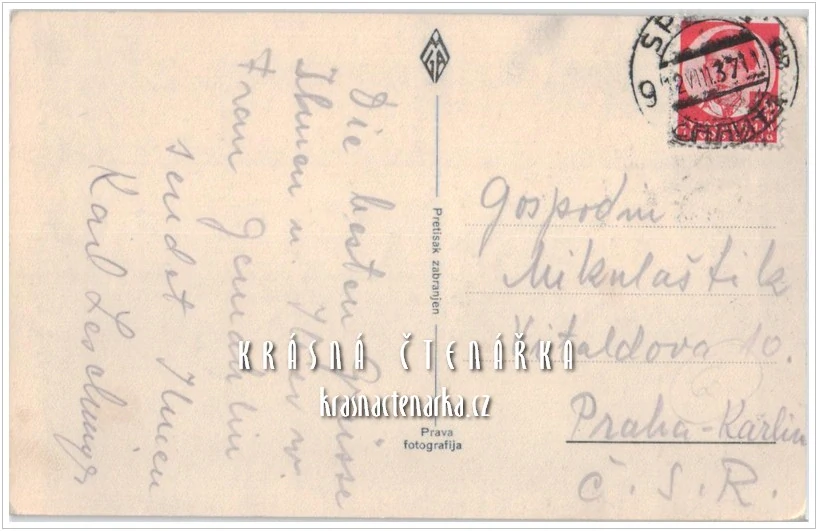 Die besten Grüsse
Ihnen u. Ihrer w.
Frau Gemahlin
sendet Ihnen
Karl
MGA
Pretisak zabranjen
Prava
fotografija
9
37
Gospodin
Mikulaštik
Vitaldova 10.
Praha-Karlin
Č. S. R.
KRÁSNÁ ČTENÁŘKA
krasnactenarka.cz